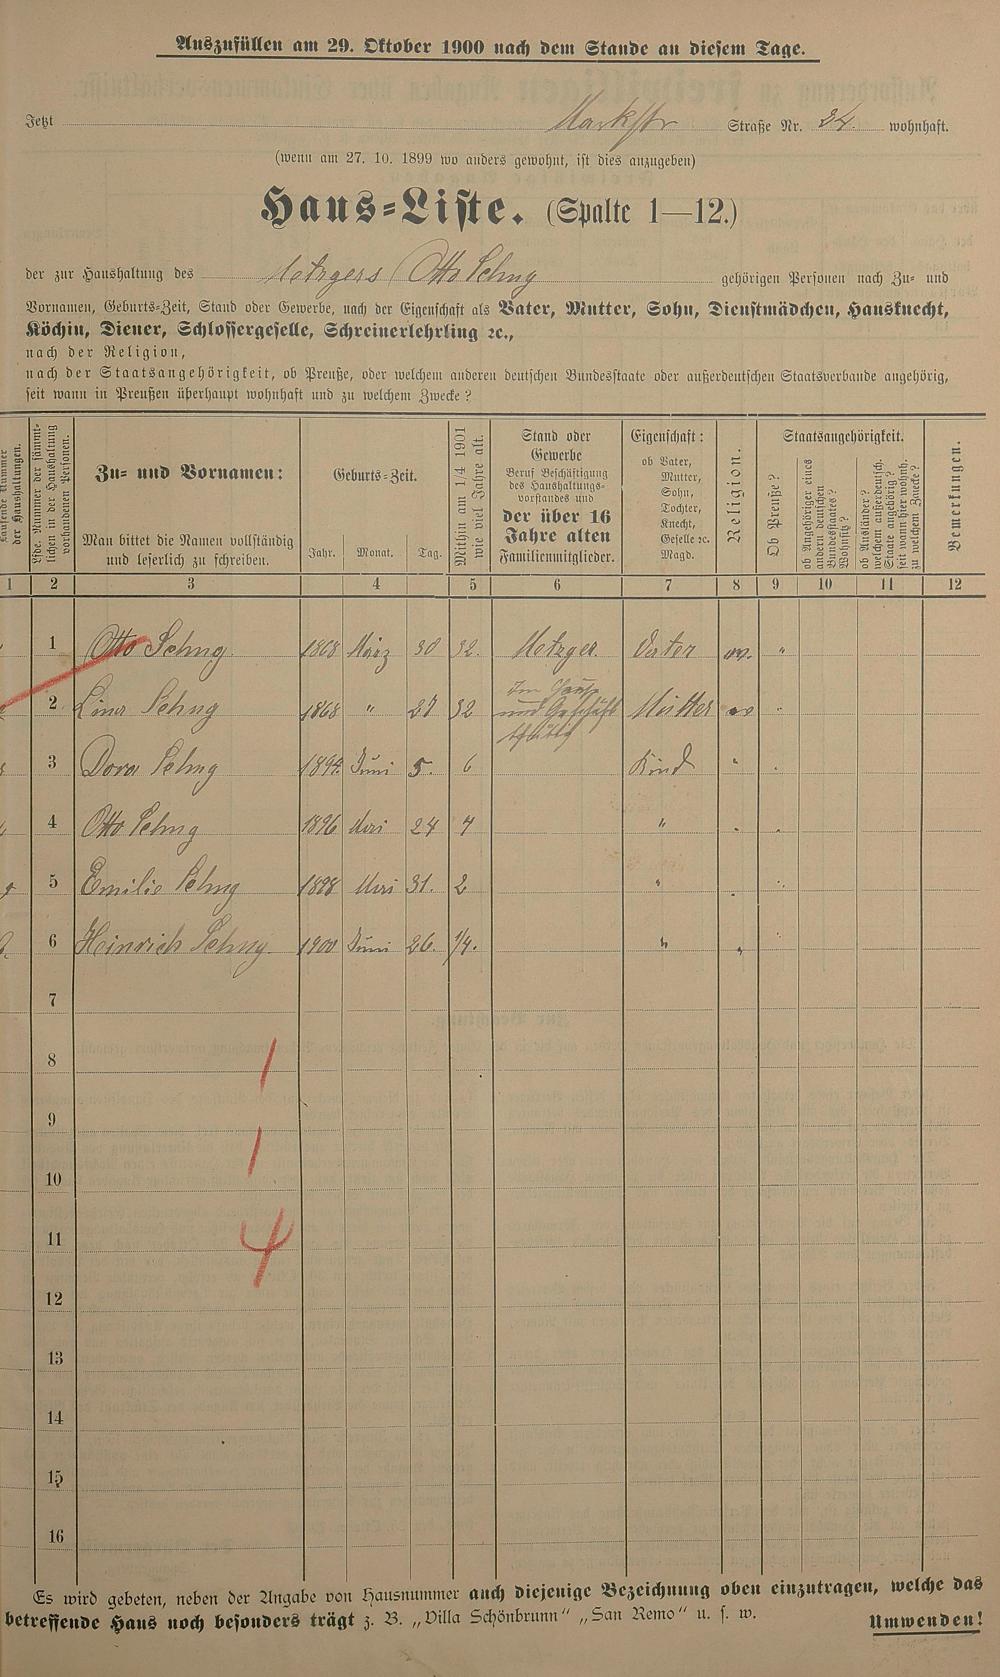 Auszufüllen am 29. Oktober 1900 nach dem Stande an diesem Tage.
Jetzt Markstr Straße Nr. 24. wohnhaft.
(wenn am 27. 10. 1899 wo anders gewohnt, ist dies anzugeben)
Haus-Liste. (Spalte 1—12.)
der zur Haushaltung des Metzgers Otto gehörigen Personen nach Zu- und
Vornamen, Geburts-Zeit, Stand oder Gewerbe, nach der Eigenschaft als Vater, Mutter, Sohn, Dienstmädchen, Hausknecht,
Köchin, Diener, Schlossergeselle, Schreinerlehrling ꝛc.,
nach der Religion,
nach der Staatsangehörigkeit, ob Preuße, oder welchem anderen deutschen Bundesstaate oder außerdeutschen Staatsverbande angehörig,
seit wann in Preußen überhaupt wohnhaft und zu welchem Zwecke?
Laufende Nummer
der Haushaltungen.
Lfde Nummer der sämmt-
lichen in der Haushaltung
vorhandenen Personen.
Zu- und Vornamen:
Man bittet die Namen vollständig
und leserlich zu schreiben.
Geburts-Zeit.
Jahr. Monat. Tag.
Mithin am 1/4 1901
wie viel Jahre alt.
Stand oder
Gewerbe
Beruf Beschäftigung
des Haushaltungs-
vorstandes und
der über 16
Jahre alten
Familienmitglieder.
Eigenschaft:
ob Vater,
Mutter,
Sohn,
Tochter,
Knecht,
Geselle ꝛc.
Magd.
Religion.
Staatsangehörigkeit.
Ob Preuße?
ob Angehöriger eines
andern deutschen
Bundesstaates?
Wohnsitz?
ob Ausländer?
welchem außerdeutsch.
Staate angehörig?
seit wann hier wohnh.
zu welchem Zwecke?
Bemerkungen.
1 2 3 4 5 6 7 8 9 10 11 12
1 Otto 1868 März 30 32. Metzger. Vater ev. "
2 Lina 1868 " 27 32 Im Haus und Geschäft thätig Mutter ev
3 Dora 1894 Juni 5. 6 Kind "
4 Otto 1896 Mai 24 4 " "
5 Emilie 1898 Mai 31. 2 " "
6 Heinrich 1900 Juni 26. 1/4. " "
7
8
1
9
1
10
11
4
12
13
14
15
16
Es wird gebeten, neben der Angabe von Hausnummer auch diejenige Bezeichnung oben einzutragen, welche das
betreffende Haus noch besonders trägt z. B. „Villa Schönbrunn“ „San Remo“ u. s. w.
Umwenden!